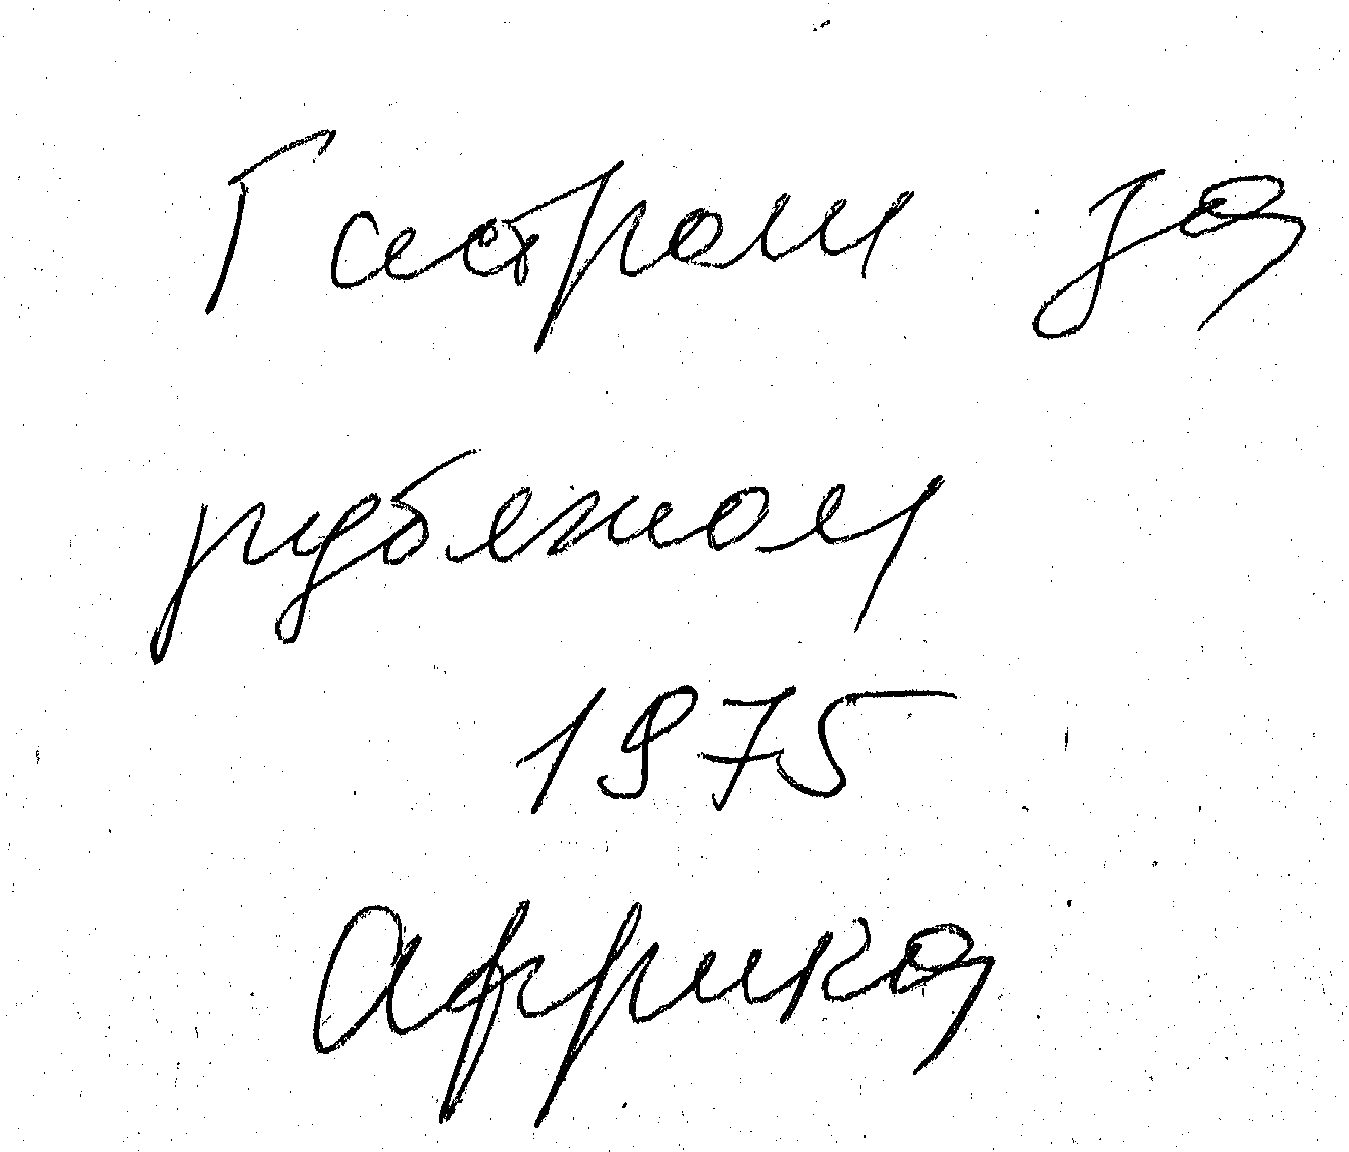 Гастроли за
рубежом
1975
Африка